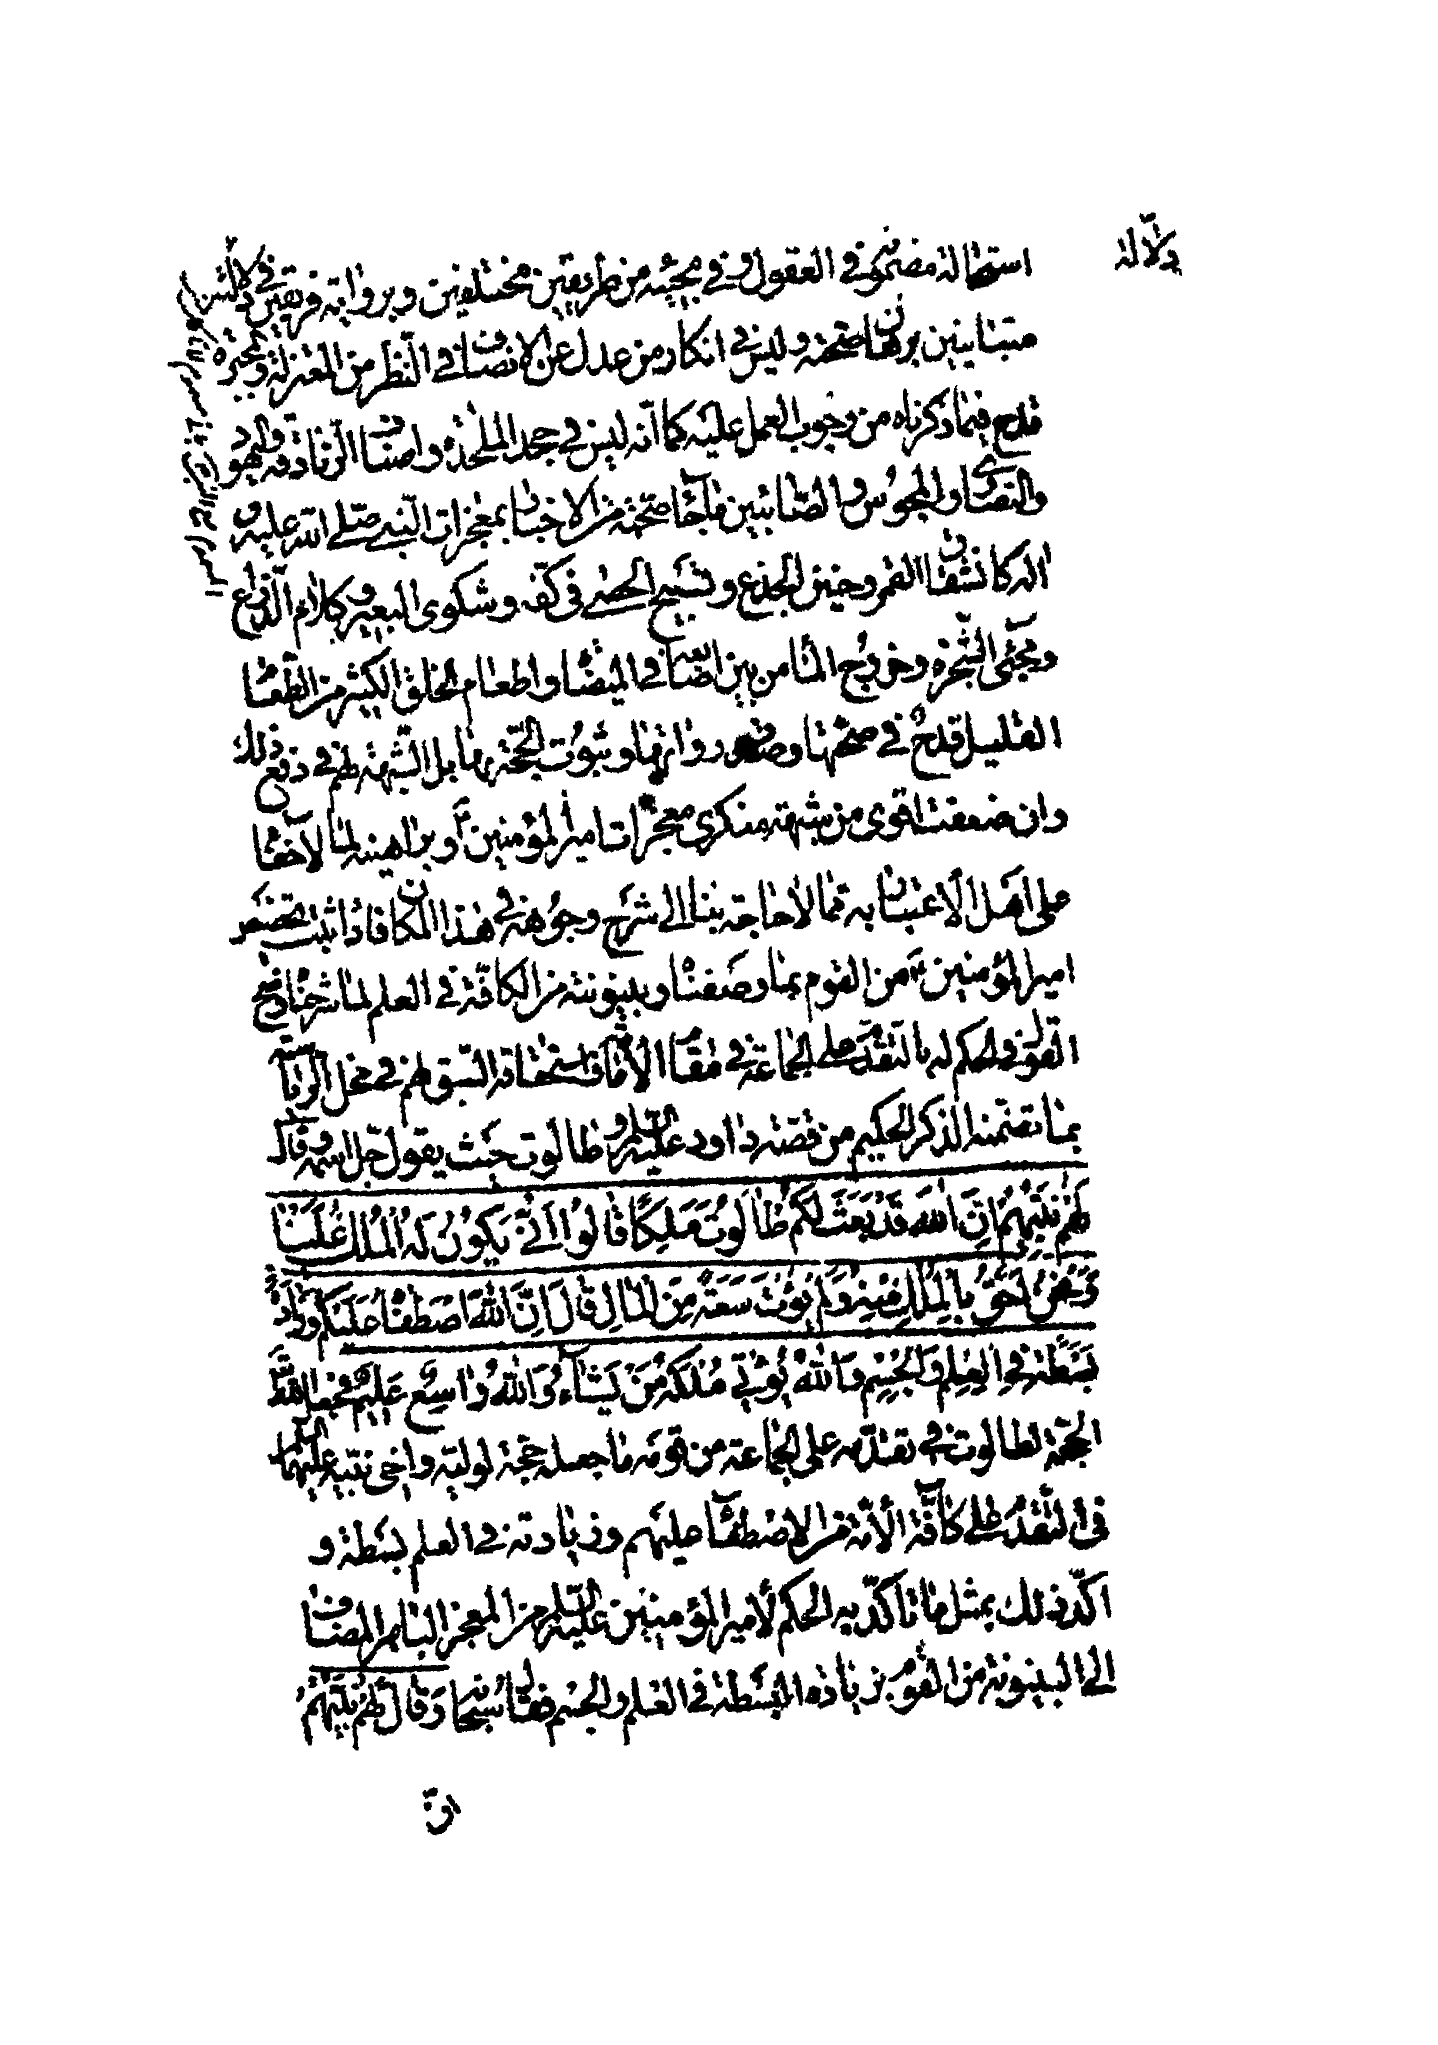 ولا له
استحالة مضمونه في العقول وفي مجيئه من طريقين مختلفين وبرواية فريقين في دلالتين
متباينين برهان صحته وليس في انكار من عدل عن الانصاف في النظر من المعتزلة والمجبرة
قدح فيما ذكرناه من وجوب العمل عليه كما انه ليس في جحد الملحدة واصناف الزنادقة واليهود
والنصارى والمجوس والصابئين ما جاء صحته من الاخبار بمعجزات النبي صلى الله عليه و
اله كانشقاق القمر وحنين الجذع وتسبيح الحصى في كفه وشكوى البعير وكلام الذراع
ومجئ الشجرة وخروج الماء من بين اصابعه في الميضاة واطعام الخلق الكثير من الطعام
القليل قدح في صحتها وصدق رواتها وثبوت الحجة بها بل الشبهة لهم في دفع ذلك
وان ضعفت اقوى من شبهة منكري معجزات امير المؤمنين وبراهينه لما لا خفاء
على اهل الاعتبار به مما لا حاجة بنا الى شرح وجوهه في هذا المكان فاذا ثبت تخصص
امير المؤمنين من القوم بما وصفناه وبينونته من الكافة في العلم لما شرحناه وضح
القول في الحكم له بالتقدم على الجماعة في مقام الامامة واستحقاقه السبق لهم في محل الرياسة
بما تضمنه الذكر الحكيم من قصة داود عليه السلام وطالوت حيث يقول جل اسمه وقال
لَهُمْ نَبِيُّهُمْ اِنَّ اللهَ قَدْ بَعَثَ لَكُمْ طَالُوتَ مَلِكًا قَالُوا اَنّى يَكُونُ لَهُ الْمُلْكُ عَلَيْنَا
وَنَحْنُ اَحَقُّ بِالْمُلْكِ مِنْهُ وَلَمْ يُؤْتَ سَعَةً مِنَ الْمَالِ قَالَ اِنَّ اللهَ اصْطَفَاهُ عَلَيْكُمْ وَزَادَهُ
بَسْطَةً فِي الْعِلْمِ وَالْجِسْمِ وَاللهُ يُؤْتِي مُلْكَهُ مَنْ يَشَاءُ وَاللهُ وَاسِعٌ عَلِيمٌ فجعل الله
الحجة لطالوت في تقدمه على الجماعة من قومه ما جعله حجة لوليه واخى نبيه عليهما السلم
في التقدم على كافة الامة من الاصطفاء عليهم وزيادته في العلم بسطة و
اكد ذلك بمثل ما تاكد به الحكم لامير المؤمنين عليه السلم من المعجز الباهر المضاف
الى البينونة من القوم بزيادة البسطة في العلم والجسم فقال سبحانه وَقَالَ لَهُمْ نَبِيُّهُمْ
انّ